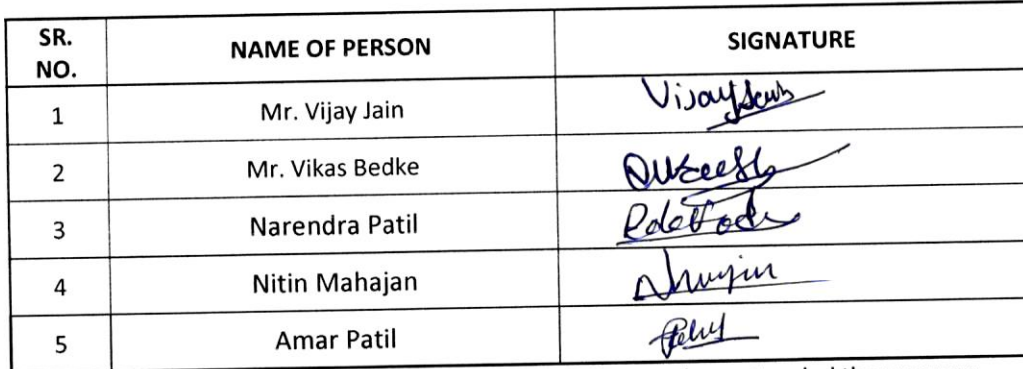 SR. NO. NAME OF PERSON SIGNATURE
1 Mr. Vijay Jain Vijay Jain
2 Mr. Vikas Bedke
3 Narendra Patil
4 Nitin Mahajan
5 Amar Patil